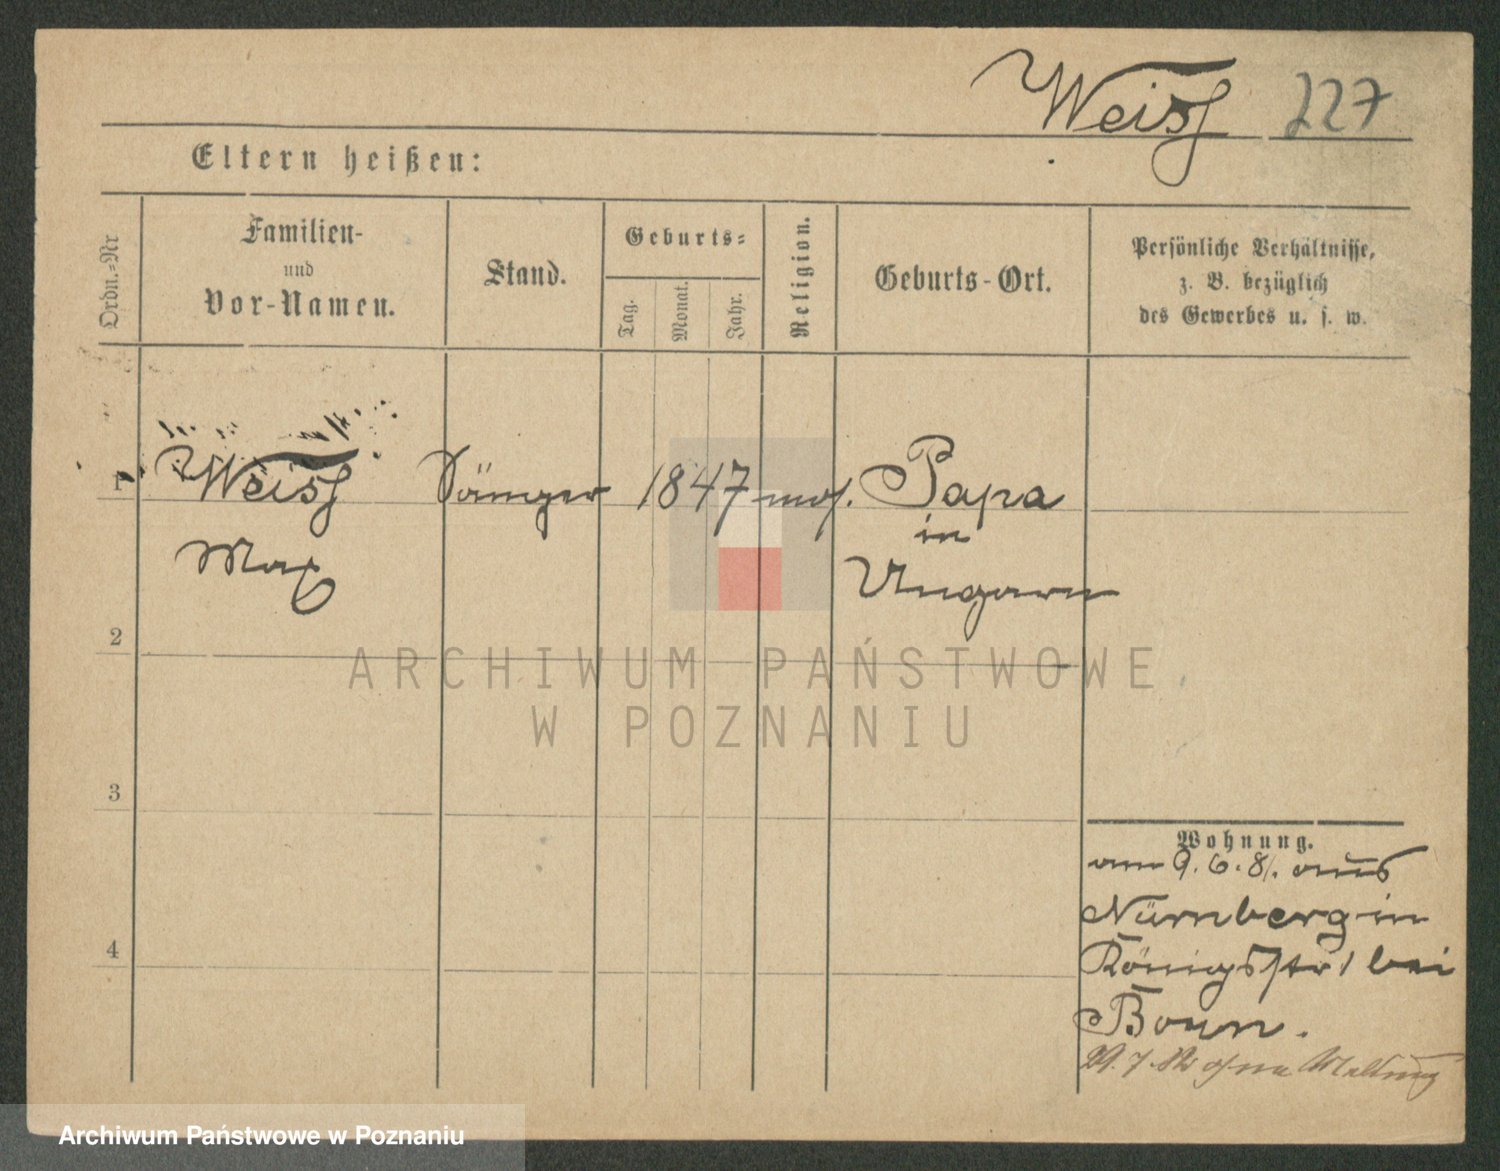 Weiss 227
Eltern heißen:
Ordn.-Nr
Familien-
und
Vor-Namen.
Stand.
Geburts-
Tag.
Monat.
Jahr.
Religion.
Geburts-Ort.
Persönliche Verhältnisse,
z. B. bezüglich
des Gewerbes u. s. w.
1 Weiss Sänger 1847 mos. Papa
in
Max Ungarn
2
ARCHIWUM PAŃSTWOWE
W POZNANIU
3
Wohnung.
am 9. 6. 81. aus
Nürnberg in
Königsstr 1 bei
4
29. 7. ohne Meldung
Archiwum Państwowe w Poznaniu